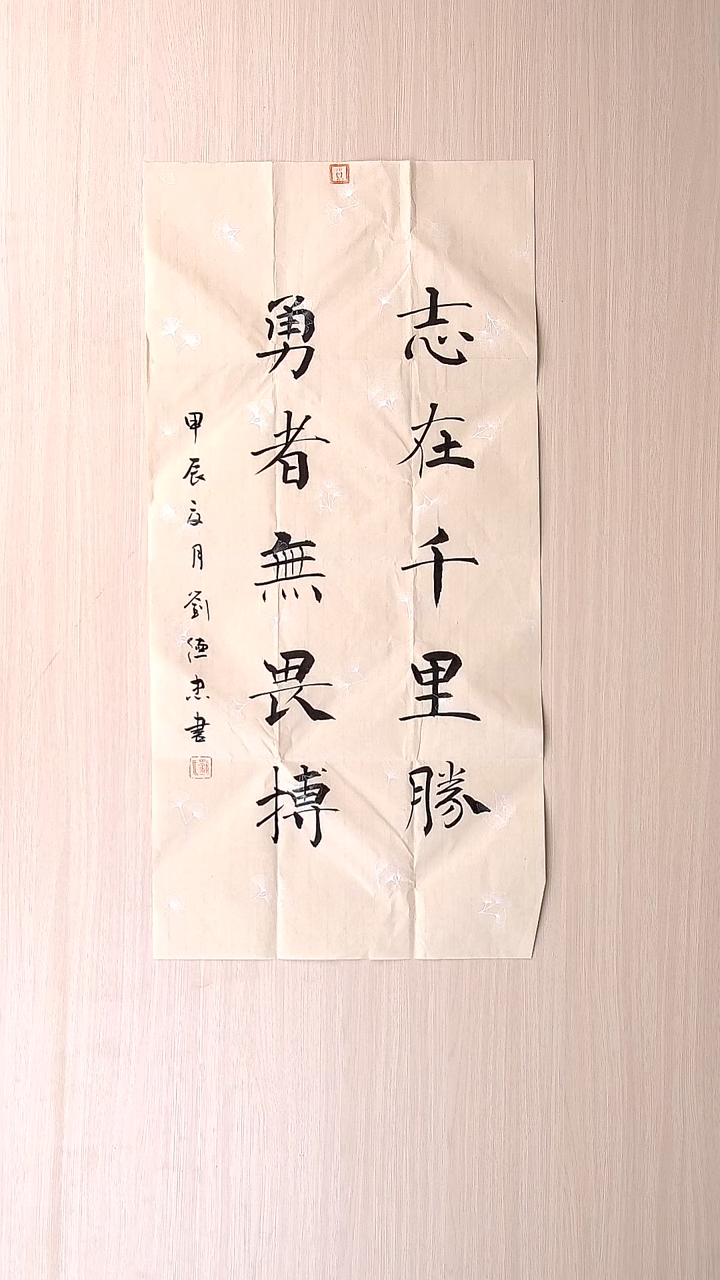 志在千里勝
勇者無畏搏
甲辰文月劉德忠書